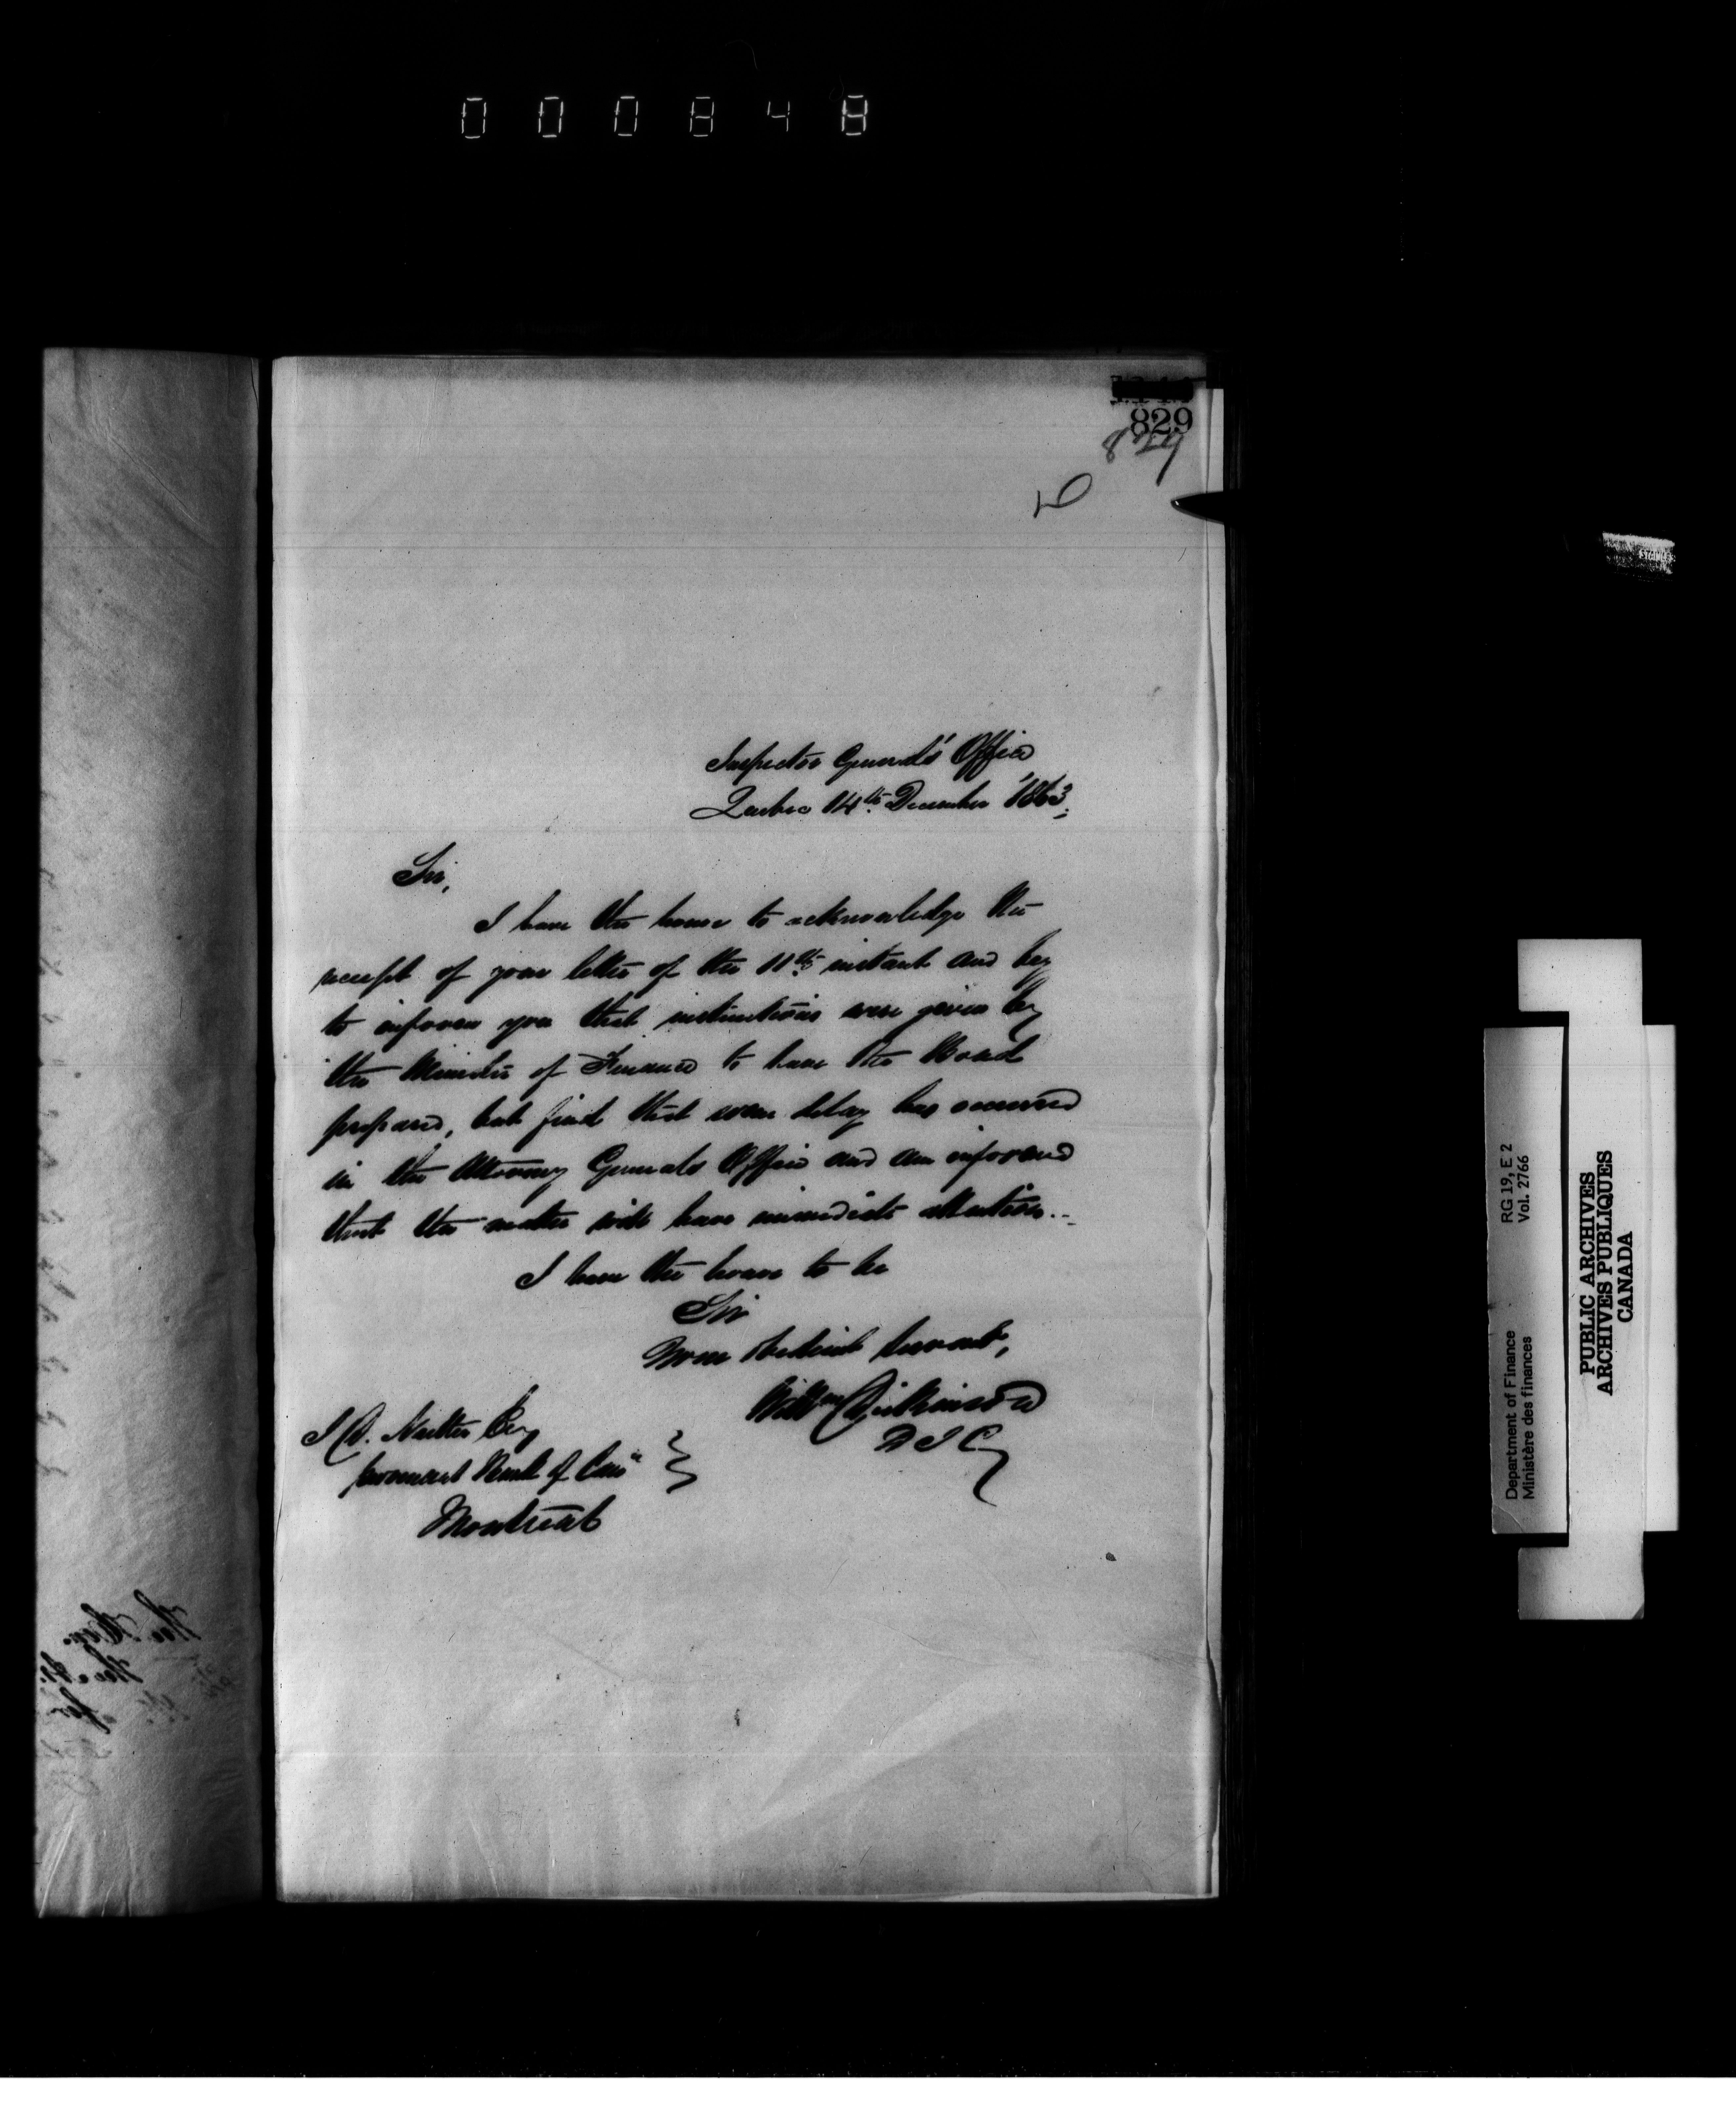 000848
829
829
Inspector General's Office
Quebec 14th December 1863.
Sir,
I have the honor to acknowledge the
receipt of your letter of the 11th instant and beg
to inform you that instructions were given by
the Minister of Finance to have the Bond
prepared, but find that some delay has occurred
in the Attorney Generals Office and am informed
that the matter will have immediate attention.
I have the honor to be
Sir
Your obedient Servant,
Willm Dickinson
D I G
Esq
Bank of
Montreal
STAINLES
Department of Finance RG 19, E 2
Ministère des finances Vol. 2766
PUBLIC ARCHIVES
ARCHIVES PUBLIQUES
CANADA